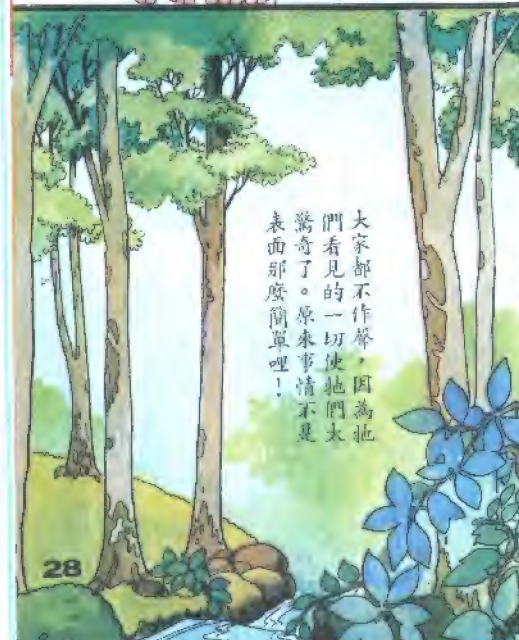 大家都不作聲，因為牠
們看見的一切使牠們太
驚奇了。原來事情不是
表面那麼簡單哩！
28